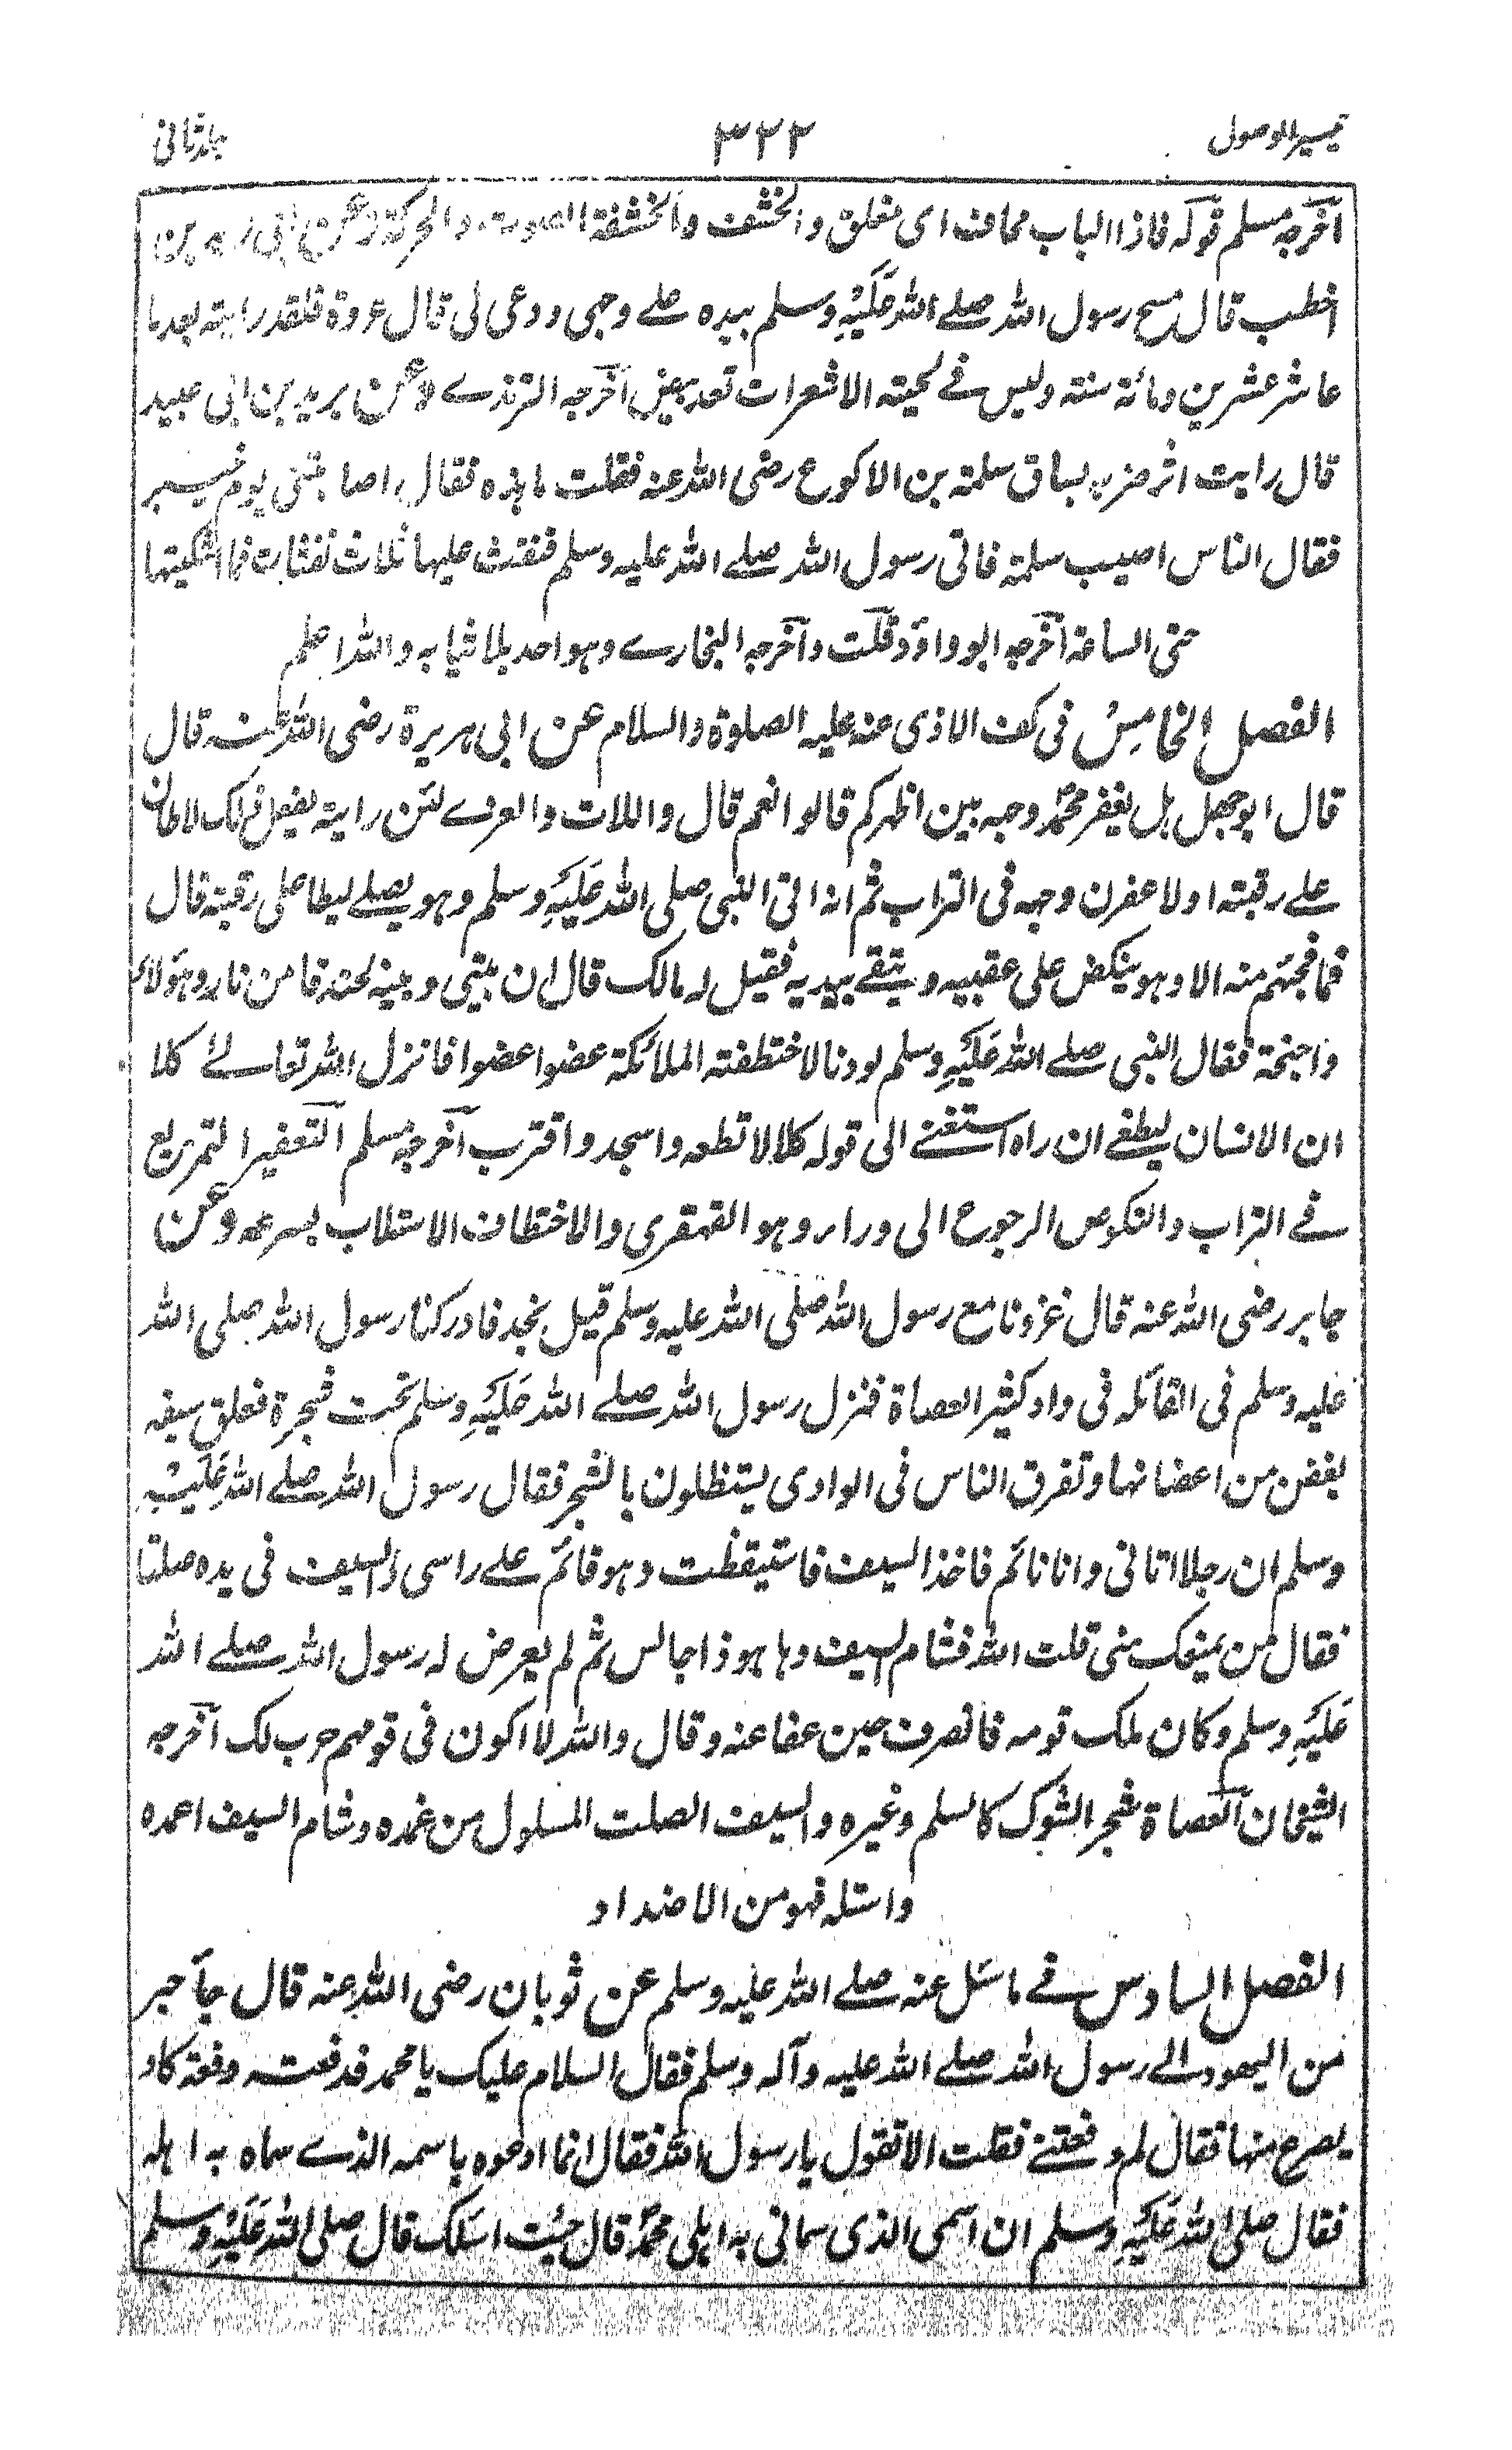 تيسير الوصول ٣٢٢ جلد ثانى
اخرجه مسلم قوله فاذا الباب مجاف اى مغلق والخشف والخشفة الصوت والحركة وعن ابى زيد بن
اخطب قال مسح رسول الله صلے الله عَلَيْهِ وسلم بيده علے وجهى ودعى لى قال عروة فلقد رايته بعد ما
عاش عشرين ومائة سنته وليس فے لحيته الا شعرات تعد بيض اخرجه الترمذے وعن يزيد بن ابى عبيد
قال رايت اثر ضربه بساق سلمة بن الاكوع رضى الله عنه فقلت ما هذه فقال اصابتنى يوم خيبر
فقال الناس اصيب سلمة فاتى رسول الله صلے الله عليه وسلم فنفث عليها ثلاث نفثات فما اشكيتها
حتى الساعة اخرجه ابو داؤد قلت واخرجه البخارے وهو احد ثلاثياته والله اعلم
الفصل الخامس فى كف الاذى عنه عليه الصلوة والسلام عن ابى هريرة رضى الله عنه قال
قال ابو جهل هل يغفر محمد وجهه بين اظهركم قالوا نعم قال واللات والعزے لئن رايته يفعل ذلك لاطان
علے رقبته اولا عفرن وجهه فى التراب ثم انه اتى النبى صلى الله عَلَيْهِ وسلم وهو يصلے ليطا على رقبته قال
فما فجئهم منه الا وهو ينكص على عقبيه ويتقے بيديه فقيل له مالك قال ان بينى وبينه لخندقا من نار وهؤلا
واجنحة فقال النبى صلے الله عَلَيْهِ وسلم لو دنا لاختطفته الملائكة عضوا عضوا فانزل الله تعالے كلا
ان الانسان ليطغے ان راه استغنے الى قوله كلا لا تطعه واسجد واقترب اخرجه مسلم التعفير التمريغ
فے التراب والنكوص الرجوع الى وراء وهو القهقرى والاختطاف الاستلاب بسرعه وعن
جابر رضى الله عنه قال غزونا مع رسول الله صلى الله عليه وسلم قبل نجد فادركنا رسول الله صلى الله
عليه وسلم فى القائله فى واد كثير العضاة فنزل رسول الله صلے الله عَلَيْهِ وسلم تحت شجرة فعلق سيفه
بغصن من اغصانها وتفرق الناس فى الوادى يستظلون بالشجر فقال رسول الله صلے الله عَلَيْهِ
وسلم ان رجلا اتانى وانا نائم فاخذ السيف فاستيقظت وهو قائم علے راسى والسيف فى يده صلتا
فقال من يمنعك منى قلت الله فشام السيف وها هو ذا جالس ثم لم يعرض له رسول الله صلے الله
عَلَيْهِ وسلم وكان ملك قومه فانصرف حين عفا عنه وقال والله لا اكون فى قوم هم حرب لك اخرجه
الشيخان العضاة شجر الشوك كالسلم وغيره والسيف الصلت المسلول من غمده وشام السيف اغمده
واستله فهو من الاضداد
الفصل السادس فے ما سئل عنه صلے الله عليه وسلم عن ثوبان رضى الله عنه قال جآ حبر
من اليهود الے رسول الله صلے الله عليه وآله وسلم فقال السلام عليك يا محمد فدفعته دفعة كاد
يصرع منها فقال لم دفعتنے فقلت الا تقول يا رسول الله فقال انما ادعوه باسمه الذے سماه به اهله
فقال صلى الله عَلَيْهِ وسلم ان اسمى الذى سمانى به اهلى محمد قال جئت اسلك قال صلى الله عَلَيْهِ وسلم